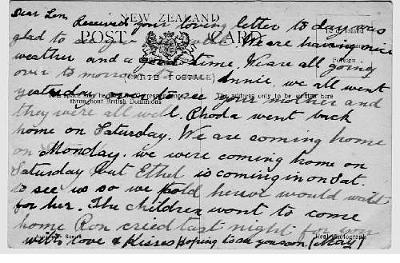 Dear Len Received your loving letter to day was
NEW ZEALAND
glad to
POST CARD
We are having nice
weather and a Good time. We are all going
(CARTE POSTALE)
over to morrow to Annie, we all went
to see your mother and
throughout British Dominions
only to be written here
they're all well Rhoda went back
home on Saturday. We are coming home
on Monday. we were coming home on
Saturday but Ethel is coming in on Sat.
to see us so we told her we would wait
for her. The children want to come
home Ron cried last night for you
with love & Kisses Hoping to see you soon (May)